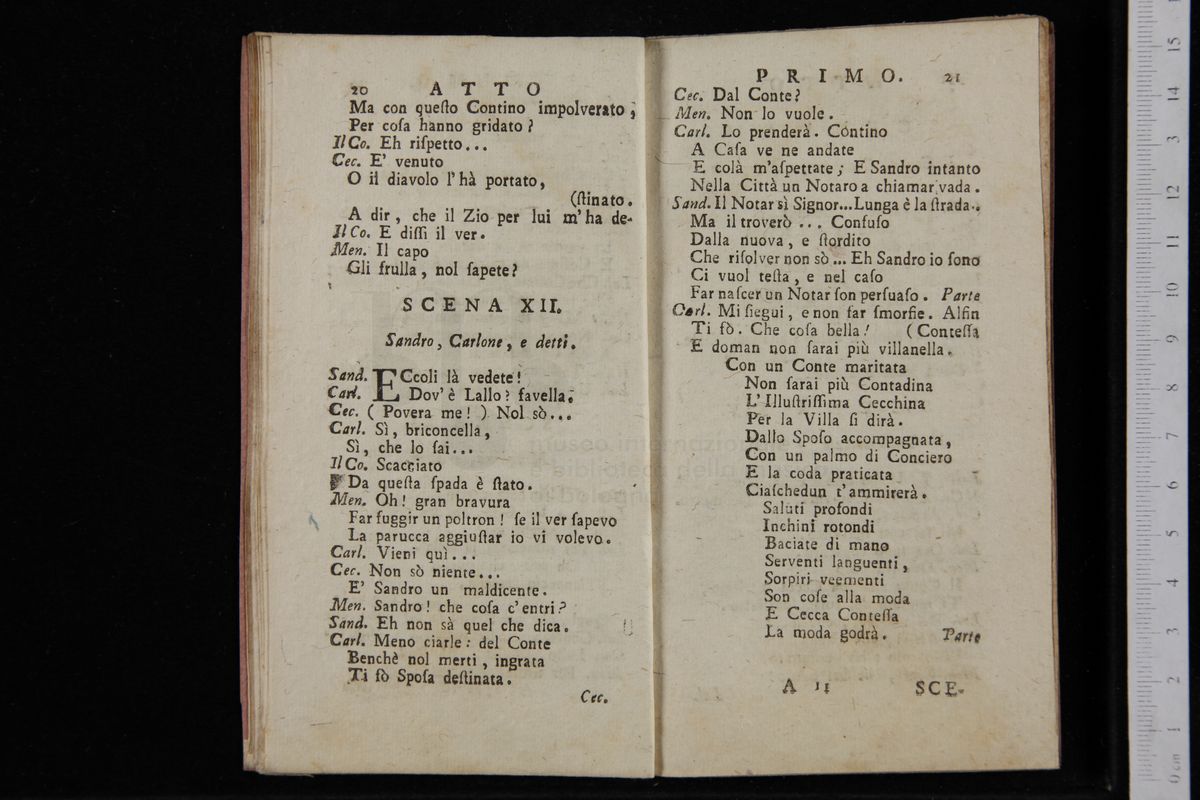 20 ATTO
Ma con queſto Contino impolverato;
Per coſa hanno gridato?
Il Co. Eh riſpetto...
Cec. E' venuto
O il diavolo l'hà portato,
(ſtinato.
A dir, che il Zio per lui m'ha de-
Il Co. E diſſi il ver.
Men. Il capo
Gli frulla, nol ſapete?
SCENA XII.
Sandro, Carlone, e detti.
Sand. ECcoli là vedete!
Carl. Dov'è Lallo? favella.
Cec. (Povera me!) Nol sò...
Carl. Sì, briconcella,
Sì, che lo ſai...
Il Co. Scacciato
Da queſta ſpada è ſtato.
Men. Oh! gran bravura
Far fuggir un poltron! ſe il ver ſapevo
La parucca aggiuſtar io vi volevo.
Carl. Vieni quì...
Cec. Non sò niente...
E' Sandro un maldicente.
Men. Sandro! che coſa c'entri?
Sand. Eh non sà quel che dica.
Carl. Meno ciarle: del Conte
Benchè nol merti, ingrata
Ti fò Spoſa deſtinata.
Cec.
PRIMO. 21
Cec. Dal Conte?
Men. Non lo vuole.
Carl. Lo prenderà. Contino
A Caſa ve ne andate
E colà m'aſpettate; E Sandro intanto
Nella Città un Notaro a chiamar vada.
Sand. Il Notar sì Signor...Lunga è la ſtrada..
Ma il troverò... Confuſo
Dalla nuova, e ſtordito
Che riſolver non sò... Eh Sandro io ſono
Ci vuol teſta, e nel caſo
Far naſcer un Notar ſon perſuaſo. Parte
Carl. Mi ſiegui, e non far ſmorfie. Alfin
Ti fò. Che coſa bella! (Conteſſa
E doman non ſarai più villanella.
Con un Conte maritata
Non ſarai più Contadina
L'Illuſtriſſima Cecchina
Per la Villa ſi dirà.
Dallo Spoſo accompagnata,
Con un palmo di Conciero
E la coda praticata
Ciaſchedun t'ammirerà.
Saluti profondi
Inchini rotondi
Baciate di mano
Serventi languenti,
Sorpiri veementi
Son coſe alla moda
E Cecca Conteſſa
La moda godrà. Parte
A 11 SCE-